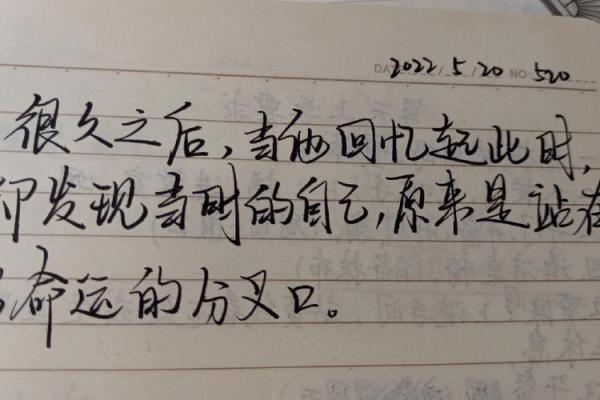 DATE 2022/5/20 NO 520
很久之后,当他回忆起此时,
却发现当时的自己,原来是站在
命运的分叉口。